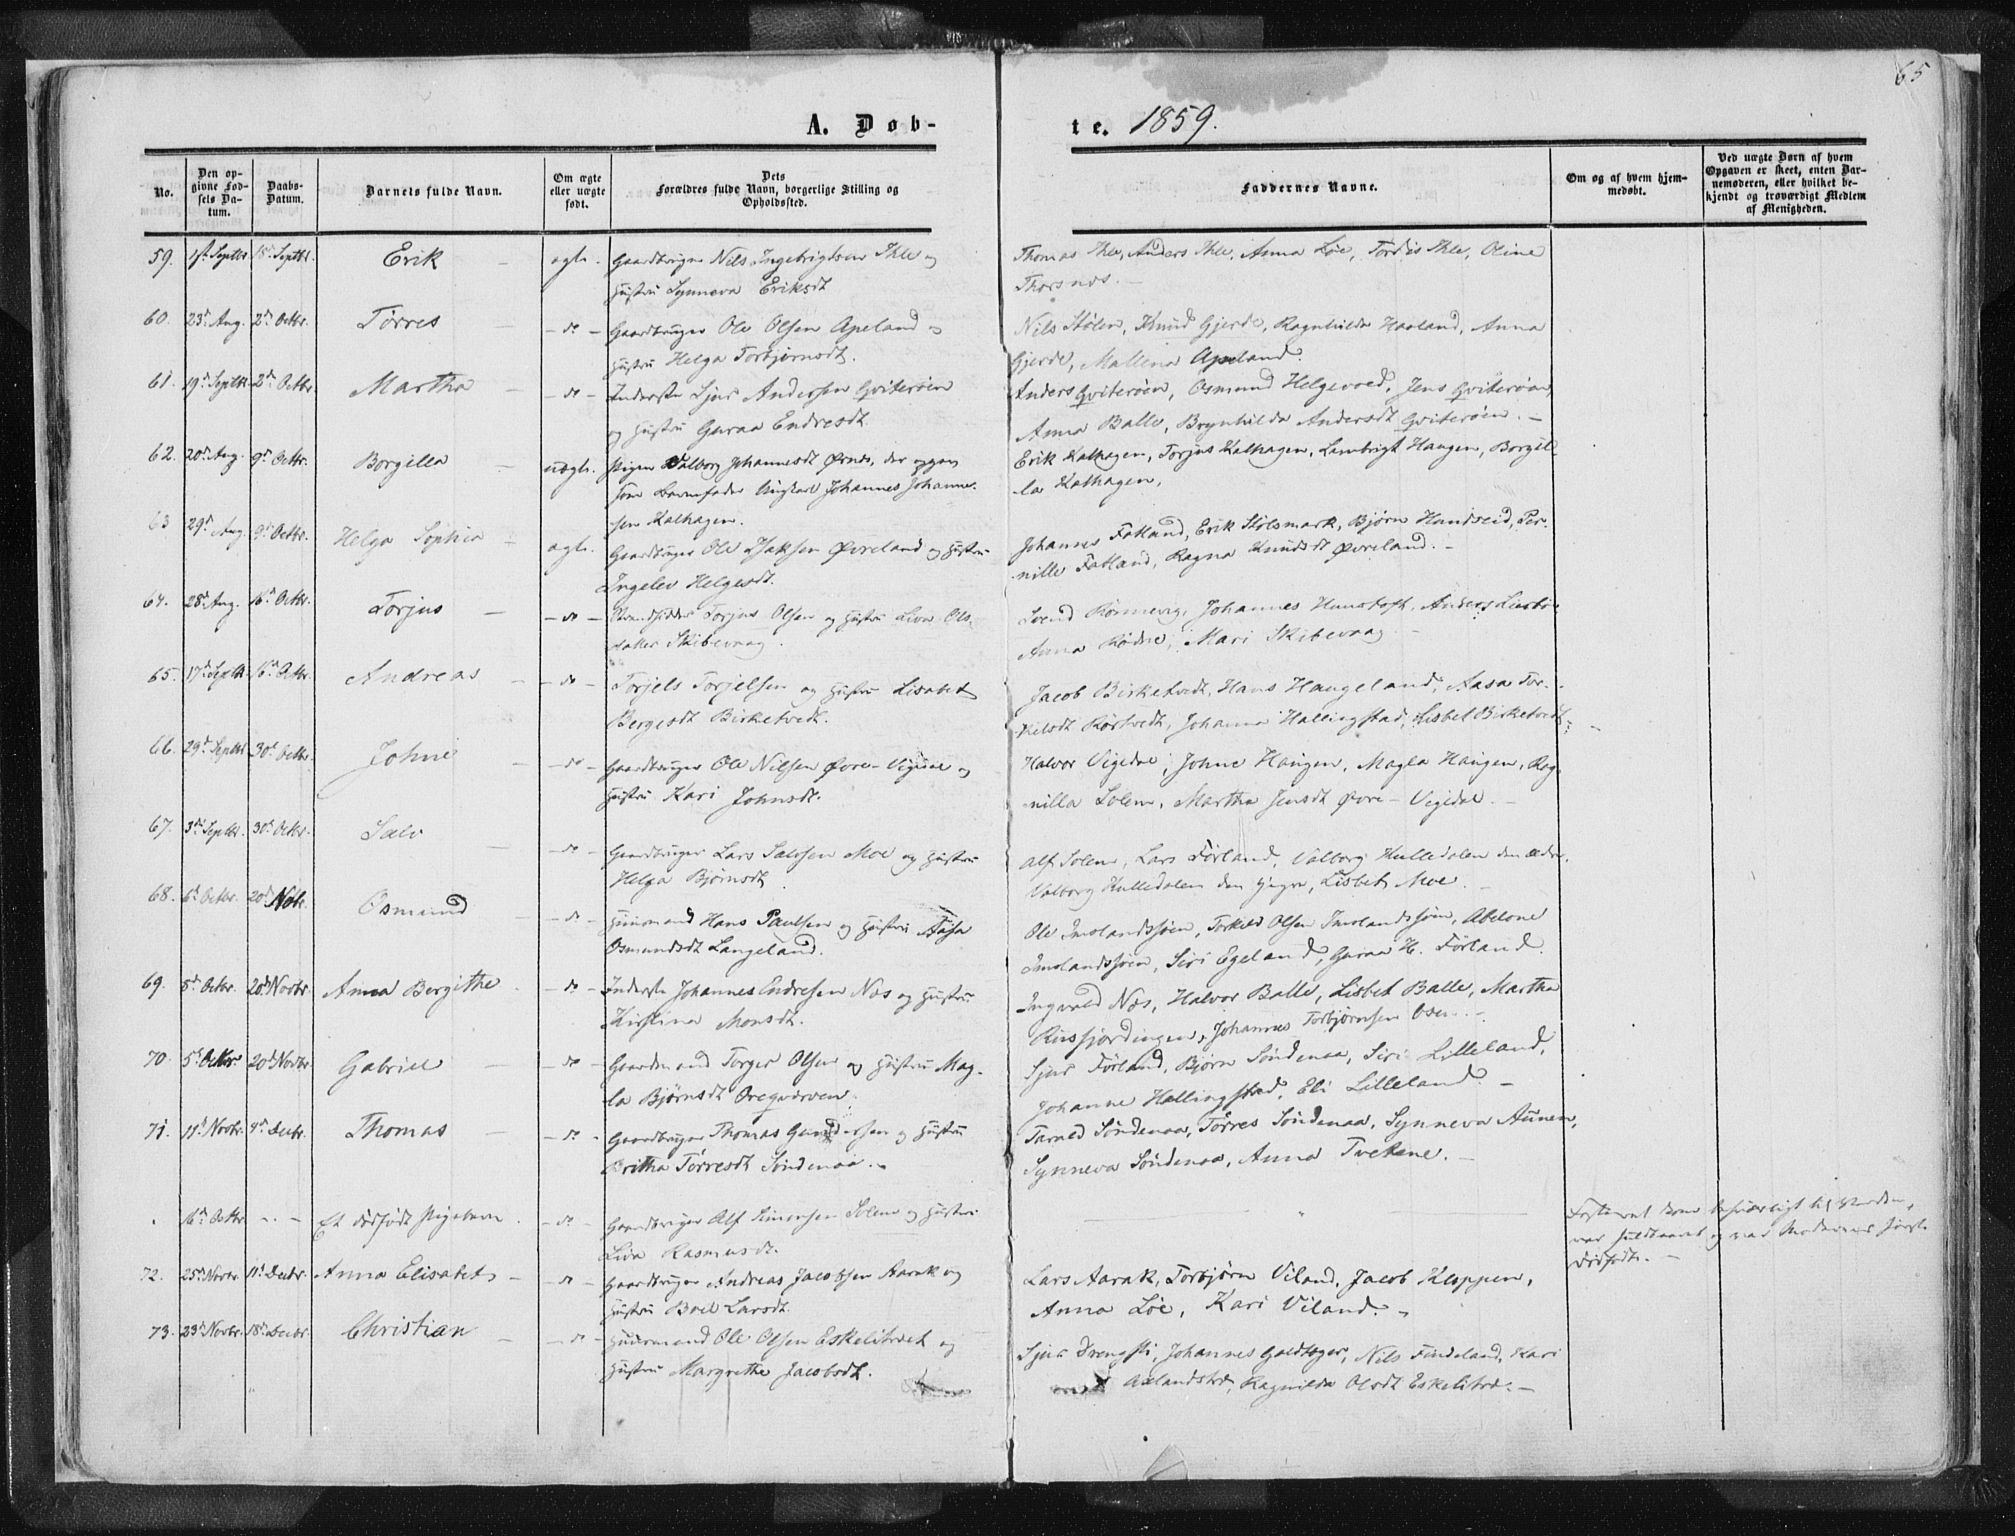 65
A. Døb-
te. 1859.
No.
Den opgivne Fødsels Datum.
Daabs-Datum.
Barnets fulde Navn.
Om ægte eller uægte født.
Dets Forældres fulde Navn, borgerlige Stilling og Opholdssted.
Faddernes Navne.
Om og af hvem hjemmedøbt.
Ved uægte Børn af hvem Opgaven er skeet, enten Barnemoderen, eller hvilket bekjendt og troværdigt Medlem af Menigheden.
59. Septbr 18 Septbr. Erik ægte. Gaardbruger Nils Ingebrigtsen Ihle og
Hustru Synneva Eriksdt
Thomas Ihle, Anders Ihle, Anna Løe, Tordis Ihle, Oline
Thorsnes. -
60. 23d Aug. 2d Octbr. Tørres - do - Gaardbruger Ole Olsen Apeland og
Hustru Helga Torbjørnsdt.
Nils Stølen, Knud Gjerde, Ragnhilda Haaland, Anna
Gjerde, Mallena Apeland.
61. 19d Septbr. 2d Octbr Martha - do - Inderste Sjur Andersen Qviterøen
og Hustru Guraa Endresdt
Anders Qviterøen, Osmund Helgevoed, Jens Qviterøen,
Anna Balle, Brynhilda Andersdt Qviterøen. -
62. 20d Aug. 9d Octbr. Borgilla uægte. Pigen Valborg Johannesdt Ørnes, der opgav
som Barnefader Ungkarl Johannes Johannes-
sen Kalhagen.
Erik Kalhagen, Torjus Kalhagen, Lambrigt Haugen, Borgil-
la Kalhagen,
63 29d Aug. 9d Octbr. Helga Sophia ægte. Gaardbruger Ole Isaksen Øvreland og Hustru
Ingelev Helgesdt.
Johannes Fatland, Erik Stølsmark, Bjørn Handseid, Per-
nille Fatland, Ragna Knudsdt Øvreland. -
64. 28d Aug. 16d Octbr. Torjus - do - Strandsidder Torjus Olsen og Hustru Liva Ols-
datter Skibevaag.
Svend Rønnevig, Johannes Hunstoft, Anders
Anna Rødne, Mari Skibevaag -
65. 17d Septbr. 16d Octbr. Andreas - do - Torjels Torjelsen og Hustru Lisabet
Bergesdt Birketvedt.
Jacob Birketvedt, Hans Haugeland, Aasa Tor-
kelsdt Rørtvedt, Johanna Hallingstad, Lisbet Birketvedt.
66. 29d Septbr 30d Octbr. Johne - do - Gaardbruger Ole Nilsen Øvre-Vigedal og
Hustru Kari Johnsdt.
Halvor Vigedal, Johne Haugen, Magla Haugen, Rag-
nilla Solem, Martha Jensdt Øvre-Vigedal. -
67. 3d Septbr. 30d Octbr. Salv - do - Gaardbruger Lars Salvsen Moe og Hustru
Helga Bjørnsdt.
Alf Solem, Lars Førland, Valborg Hulledalen den ældre,
Valborg Hulledalen den yngre, Lisbet Moe. -
68. 6d Octbr. 20d Nobr. Osmund - do - Huusmand Hans Paulsen og Hustru Aasa
Osmundsdt Langeland.
Ole Imslandssjøen, Torkild Olsen Imslandssjøen, Abelone
Imslandssjøen, Siri Egeland, Guraa H. Førland.
69. 5d Octbr. 20d Novbr. Anna Bergithe - do - Inderste Johannes Endresen Næs og Hustru
Kirstina Monsdt.
Ingvald Næs, Halvor Balle, Lisbet Balle, Martha
Husfjordingen, Johannes Torbjørnsen Osen. -
70. 5d Octbr. 20d Novbr Gabriel - do - Gaardmand Torger Olsen og Hustru Mag-
la Bjørnsdt Oreqværven.
Sjur Førland, Bjørn Søndenaa, Siri Lilleland,
Johanne Hallingstad, Eli Lilleland. -
71. 11d Novbr. 4d Decbr. Thomas - do - Gaardbruger Thomas Gundersen og Hustru
Britha Tørresdt Søndenaa. -
Tarald Søndenaa, Tørres Søndenaa, Synneva Aunen,
Synneva Søndenaa, Anna Tvetene. -
16d Octbr. - . - Et dødfødt Pigebarn. - do - Gaardbruger Alf Simonsen Solem og Hustru
Liva Rasmusdt.
Fosteret kom besværligt til Verden,
var fuldbaaret og var Moderens første
dødfødte. -
72. 25d Novbr. 11d Decbr. Anna Elisabet - do - Gaardbruger Andreas Jacobsen Aarak og
Hustru Boel Larsdt.
Lars Aarak, Torbjørn Viland, Jacob Kloppen,
Anna Løe, Kari Viland. -
73. 23d Novbr. 18d Decbr. Christian - do - Huusmand Ole Olsen Eskelitræet og
Hustru Margrethe Jacobsdt.
Sjur Drengsti, Johannes, Nils Findeland, Kari
Aalandstræ, Ragnilda Olsdt Eskelitræ. -